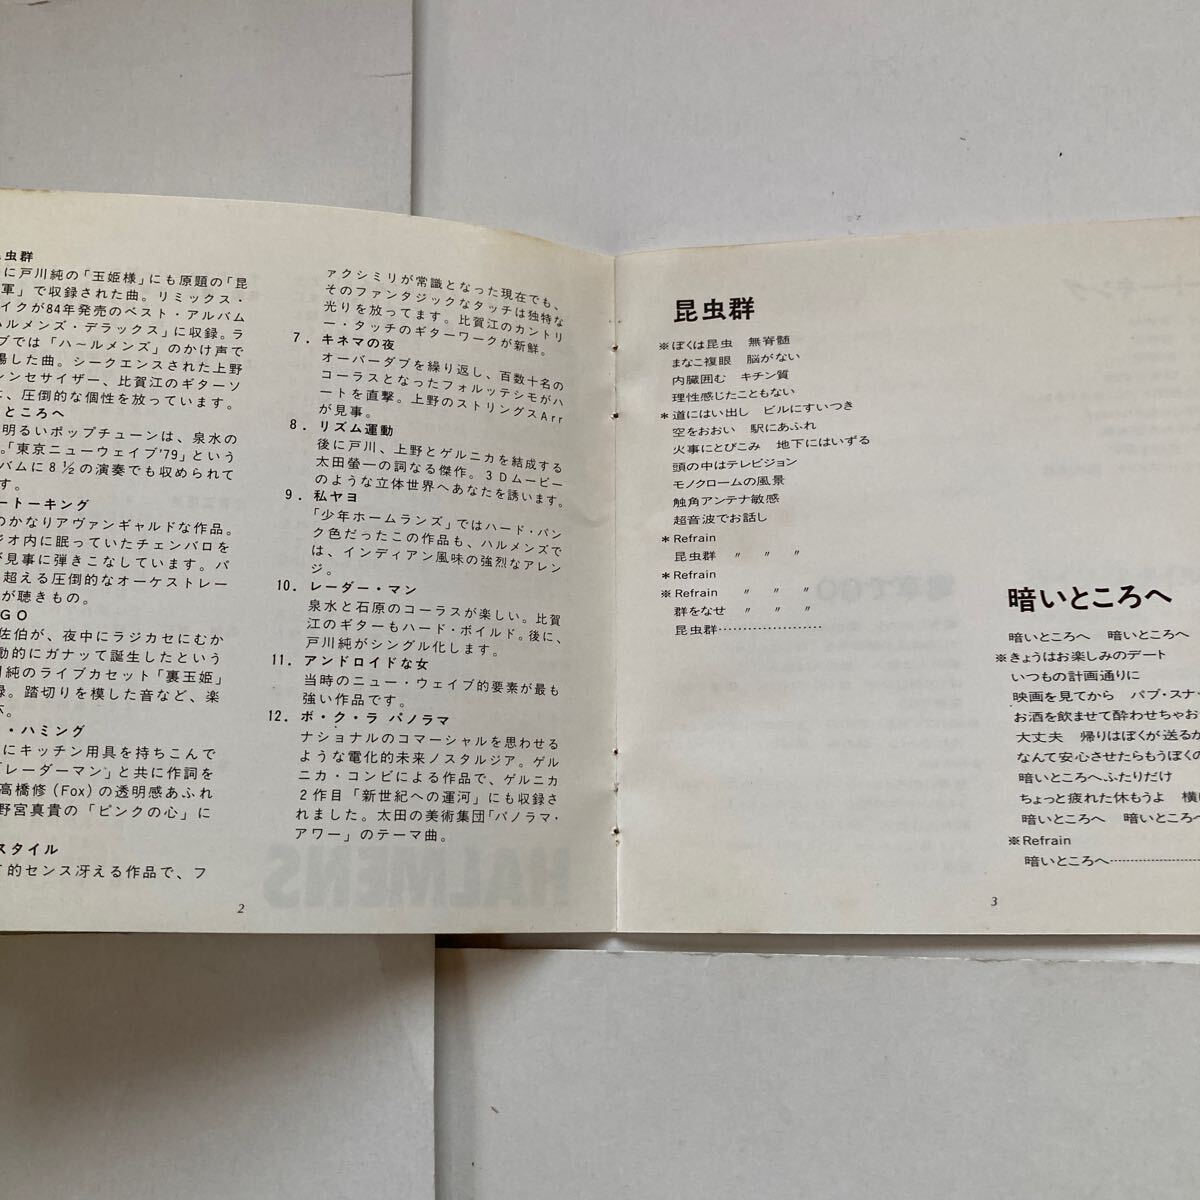 虫群
に戸川純の「玉姫様」にも原題の「昆
軍」で収録された曲。リミックス・
イクが84年発売のベスト・アルバム
ハルメンズ・デラックス」に収録。ラ
ブでは「ハ〜ルメンズ」のかけ声で
場した曲。シークエンスされた上野
シンセサイザー、比賀江のギターソ
、圧倒的な個性を放っています。
ところへ
明るいポップチューンは、泉水の
。「東京ニューウェイブ'79」という
バムに8½の演奏でも収められて
す。
ートーキング
のかなりアヴァンギャルドな作品。
ジオ内に眠っていたチェンバロを
が見事に弾きこなしています。バ
超える圧倒的なオーケストレー
が聴きもの。
GO
佐伯が、夜中にラジカセにむか
動的にガナッて誕生したという
川純のライブカセット「裏玉姫」
録。踏切りを模した音など、楽
・ハミング
にキッチン用具を持ちこんで
「レーダーマン」と共に作詞を
高橋修(Fox)の透明感あふれ
野宮真貴の「ピンクの心」に
スタイル
的センス冴える作品で、フ
ァクシミリが常識となった現在でも、
そのファンタジックなタッチは独特な
光りを放ってます。比賀江のカントリ
ー・タッチのギターワークが新鮮。
7. キネマの夜
オーバーダブを繰り返し、百数十名の
コーラスとなったフォルッテシモがハ
ートを直撃。上野のストリングスArr
が見事。
8. リズム運動
後に戸川、上野とゲルニカを結成する
太田螢一の詞なる傑作。3Dムービー
のような立体世界へあなたを誘います。
9. 私ヤヨ
「少年ホームランズ」ではハード・パン
ク色だったこの作品も、ハルメンズで
は、インディアン風味の強烈なアレン
ジ。
10. レーダー・マン
泉水と石原のコーラスが楽しい。比賀
江のギターもハード・ボイルド。後に、
戸川純がシングル化します。
11. アンドロイドな女
当時のニュー・ウェイブ的要素が最も
強い作品です。
12. ボ・ク・ラ パノラマ
ナショナルのコマーシャルを思わせる
ような電化的未来ノスタルジア。ゲル
ニカ・コンビによる作品で、ゲルニカ
2作目「新世紀への運河」にも収録さ
れました。太田の美術集団「パノラマ・
アワー」のテーマ曲。
2
昆虫群
※ぼくは昆虫 無脊髄
まなこ複眼 脳がない
内臓囲む キチン質
理性感じたこともない
*道にはい出し ビルにすいつき
空をおおい 駅にあふれ
火事にとびこみ 地下にはいずる
頭の中はテレビジョン
モノクロームの風景
触角アンテナ敏感
超音波でお話し
*Refrain
昆虫群 〃 〃 〃
*Refrain
※Refrain 〃 〃 〃
群をなせ 〃 〃 〃
昆虫群…………………
暗いところへ
暗いところへ 暗いところへ
※きょうはお楽しみのデート
いつもの計画通りに
映画を見てから パブ・スナッ
お酒を飲ませて酔わせちゃお
大丈夫 帰りはぼくが送るか
なんて安心させたらもうぼくの
暗いところへふたりだけ
ちょっと疲れた休もうよ 横
暗いところへ 暗いところへ
※Refrain
暗いところへ………………
3